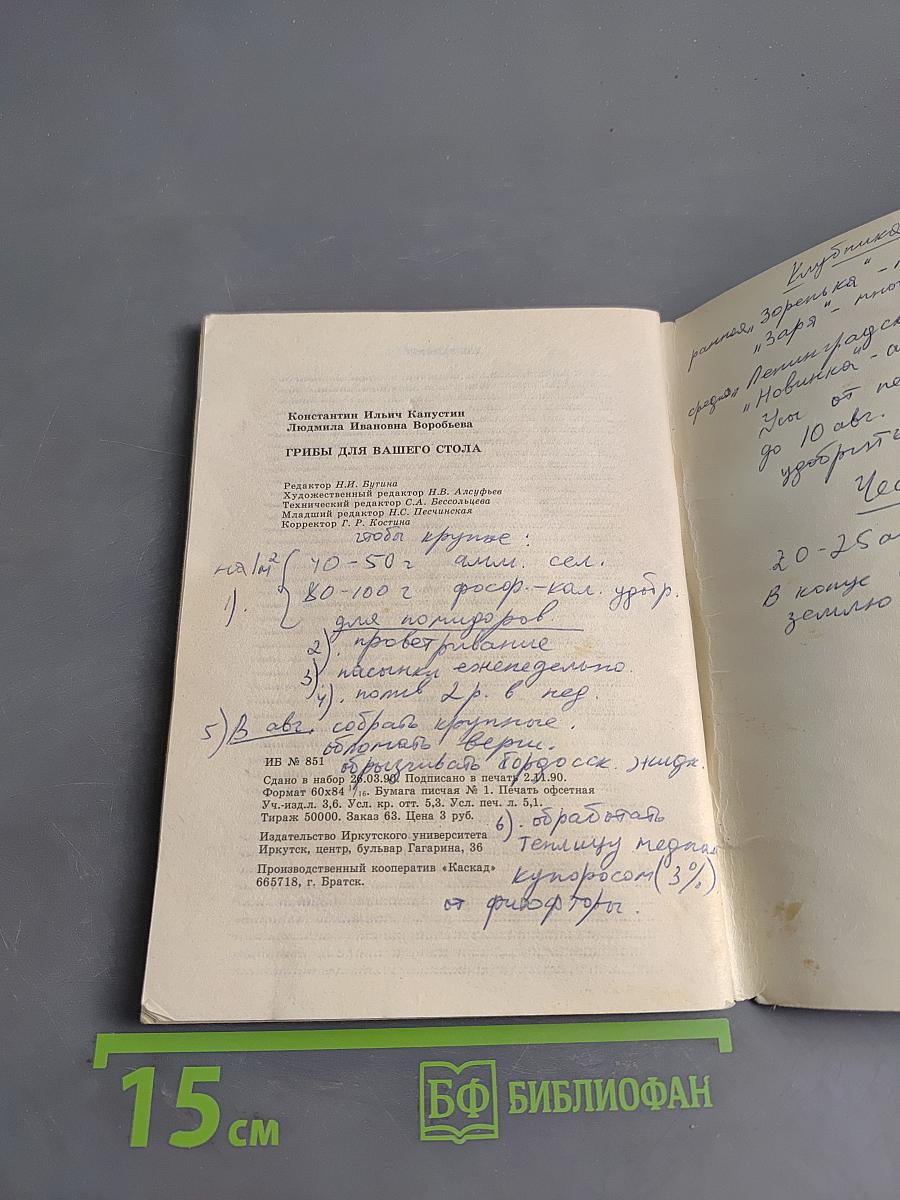 Константин Ильич Капустин
Людмила Ивановна Воробьева
ГРИБЫ ДЛЯ ВАШЕГО СТОЛА
Редактор Н.И. Бугина
Художественный редактор Н.В. Алсуфьев
Технический редактор С.А. Бессольцева
Младший редактор Н.С. Песчинская
Корректор Г. Р. Костина
чтобы крупне:
на 1 м² 40-50 г амм. сел.
1). 80-100 г фосфор.-кал. удобр.
для помидоров
2). проветривание
3) пасынки еженедельно.
4). полив 2 р. в нед.
5) В авг. собрать крупные.
обломать верхи.
обрызгивать бордосск. жидк.
ИБ № 851
Сдано в набор 26.03.90. Подписано в печать 2.11.90.
Формат 60х84 1/16. Бумага писчая № 1. Печать офсетная
Уч.-изд.л. 3,6. Усл. кр. отт. 5,3. Усл. печ. л. 5,1.
Тираж 50000. Заказ 63. Цена 3 руб.
Издательство Иркутского университета
Иркутск, центр, бульвар Гагарина, 36
Производственный кооператив «Каскад»
665718, г. Братск.
6). обработать
теплицу медным
купоросом (3%)
от фитофторы.
Клубника
ранняя „Зоренька" -
„Заря" -
средняя „Ленинградск
„Новинка" -
Усы от
до 10 авг.
удобрить
20-25
В конце
землю
15 см
БФ БИБЛИОФАН